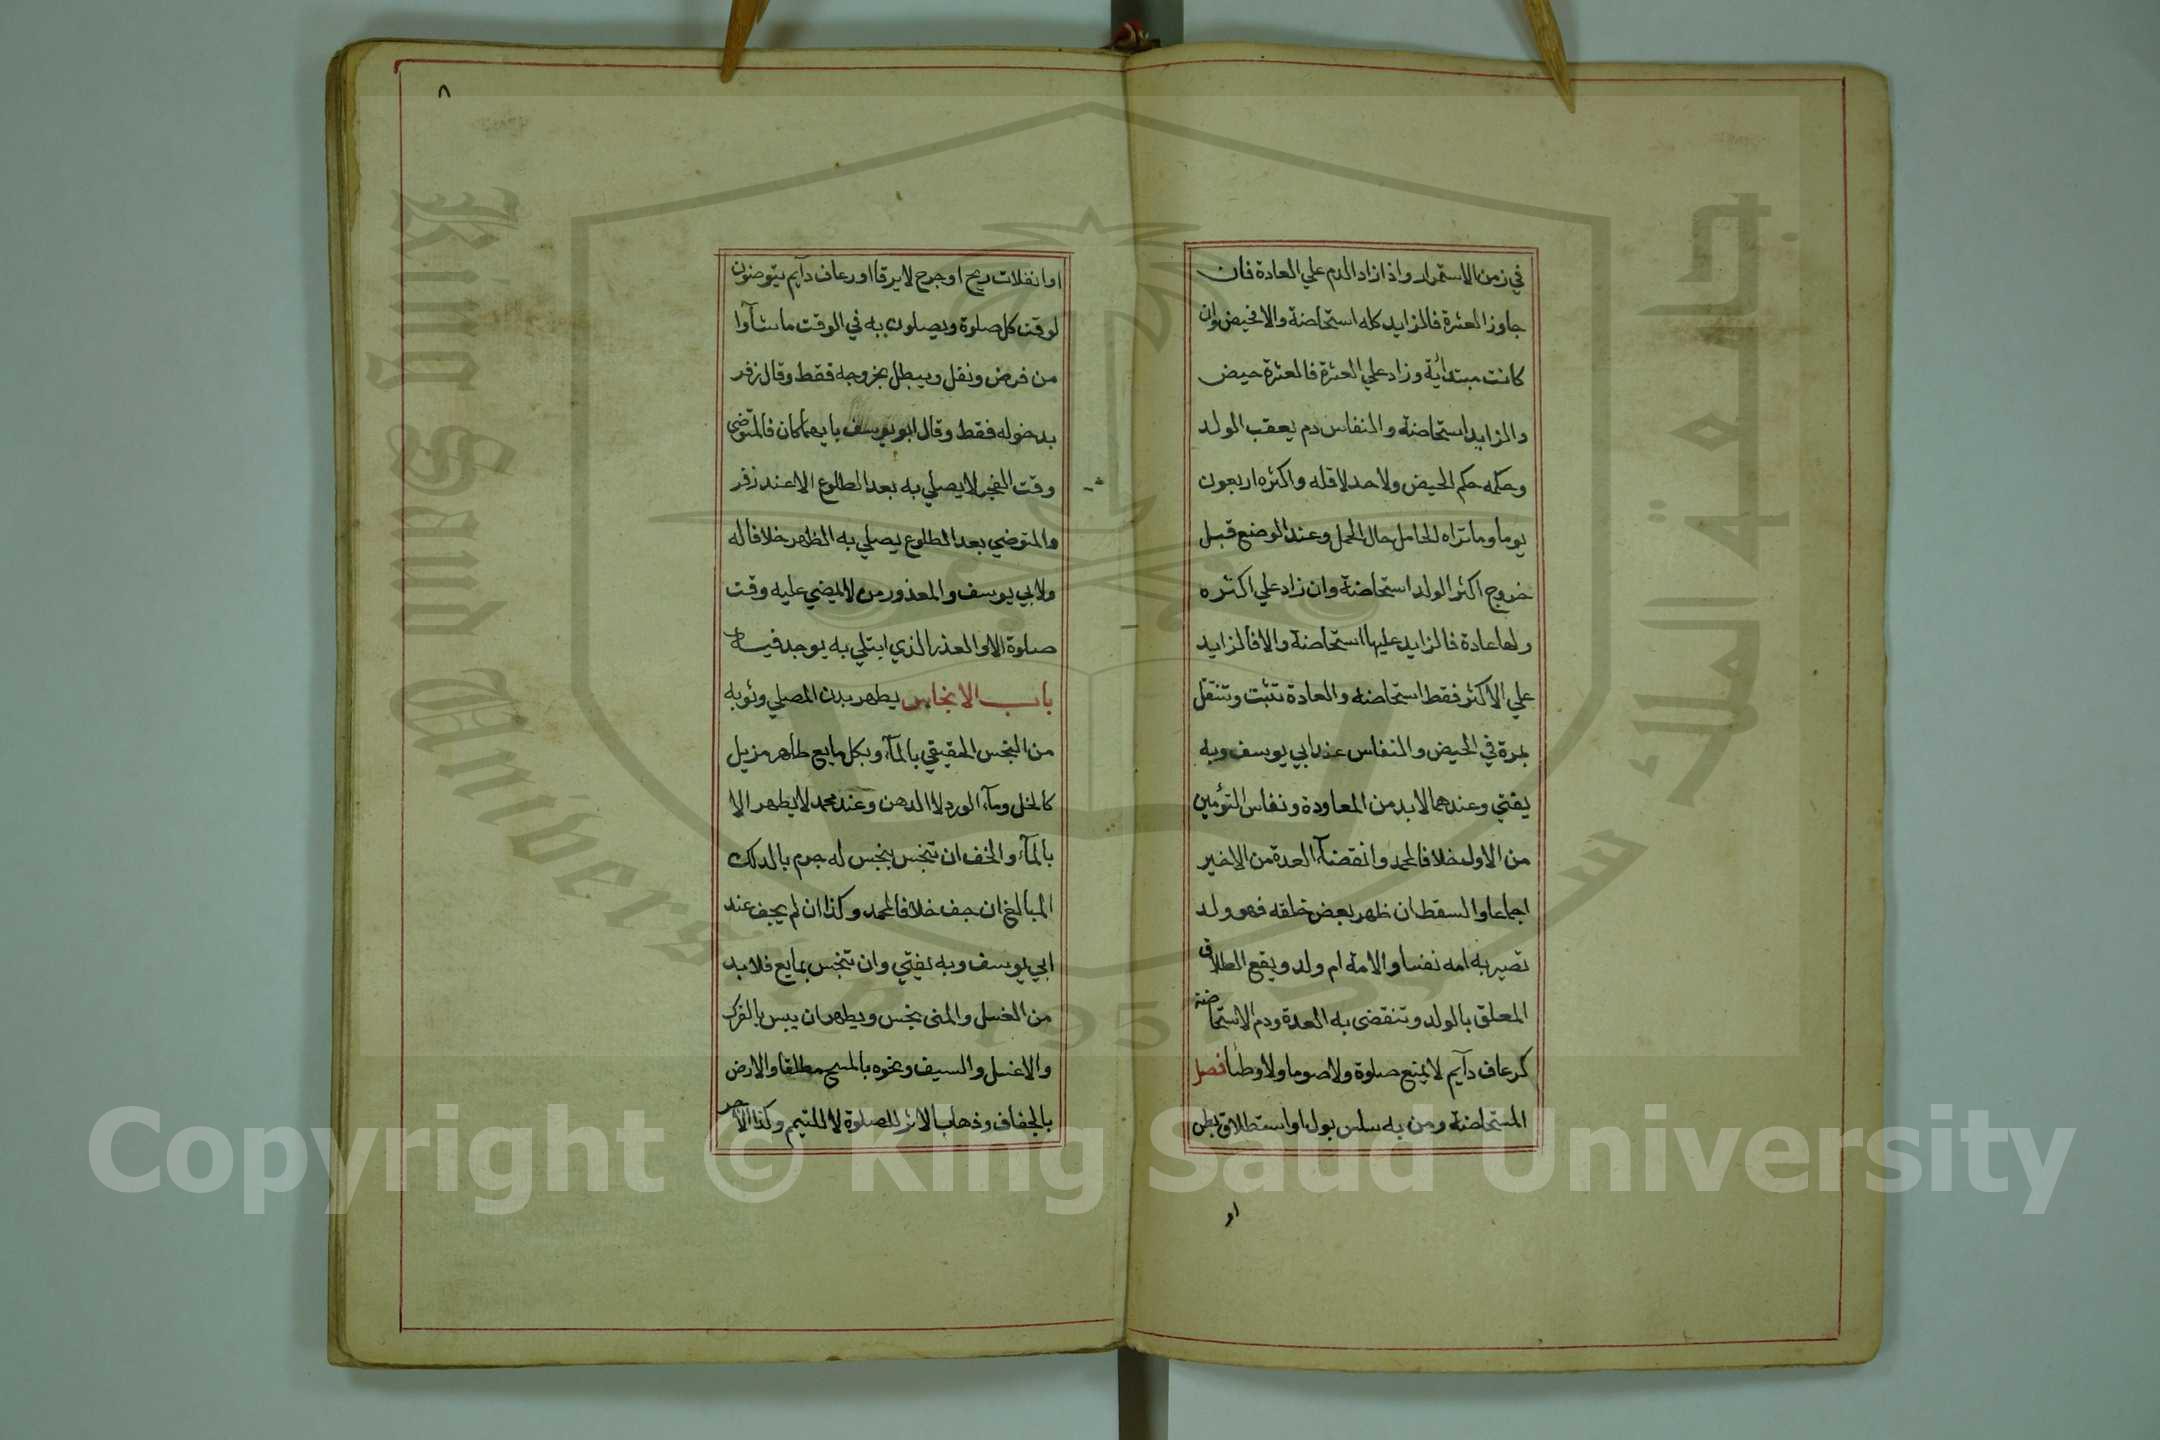 في زمن الاستمرار واذا زاد الدم علي العادة فان
جاوز العشرة فالزايد كله استحاضة والا فحيض وان
كانت مبتدأية وزاد علي العشرة فالعشرة حيض
والزايد استحاضة والنفاس دم يعقب الولد
وحكمه حكم الحيض ولا حد لاقله واكثره اربعون
يوما وما تراه الحامل حال الحمل وعند الوضع قبل
خروج اكثر الولد استحاضة وان زاد علي اكثره
ولها عادة فالزايد عليها استحاضة والا فالزايد
علي الاكثر فقط استحاضة والعادة تثبت وتنتقل
بمرة في الحيض والنفاس عند ابي يوسف وبه
يفتي وعندهما لابد من المعاودة ونفاس التؤمين
من الاول خلافا لمحمد وانقضآء العدة من الاخير
اجماعا والسقط ان ظهر بعض خلقه فهو ولد
تصير به امه نفسا والامة ام ولد ويقع الطلاق
المعلق بالولد وتنقضي به العدة ودم الاستحاضة
كرعاف دآيم لا يمنع صلوة ولا صوما ولا وطئا فصل
المستحاضة ومن به سلس بول او استطلاق بطن
او
٨
او انفلات ريح او جرح لا يرقا او رعاف دآيم يتوضئون
لوقت كل صلوة ويصلون به في الوقت ما شآوا
من فرض ونفل ويبطل بخروجه فقط وقال زفر
بدخوله فقط وقال ابو يوسف بايهما كان فالمتوضي
وقت الفجر لا يصلي به بعد الطلوع الا عند زفر
والمتوضي بعد الطلوع يصلي به الظهر خلافا له
ولابي يوسف والمعذور من لا يمضي عليه وقت
صلوة الا والعذر الذي ابتلي به يوجد فيه
باب الانجاس يطهر بدن المصلي وثوبه
من النجس الحقيقي بالمآء وبكل مايع طاهر مزيل
كالخل ومآء الورد لا الدهن وعند محمد لا يطهر الا
بالمآء والخف ان تنجس بنجس له جرم بالدلك
المبالغ ان جف خلافا لمحمد وكذا ان لم يجف عند
ابي يوسف وبه يفتي وان تنجس بمايع فلابد
من الغسل والمني نجس ويطهر ان يبس بالفرك
والا غسل والسيف ونحوه بالمسح مطلقا والارض
بالجفاف وذهاب الاثر للصلوة لا للتيمم وكذا الآجر
جامعة الملك سعود
King Saud University
1957
Copyright © King Saud University